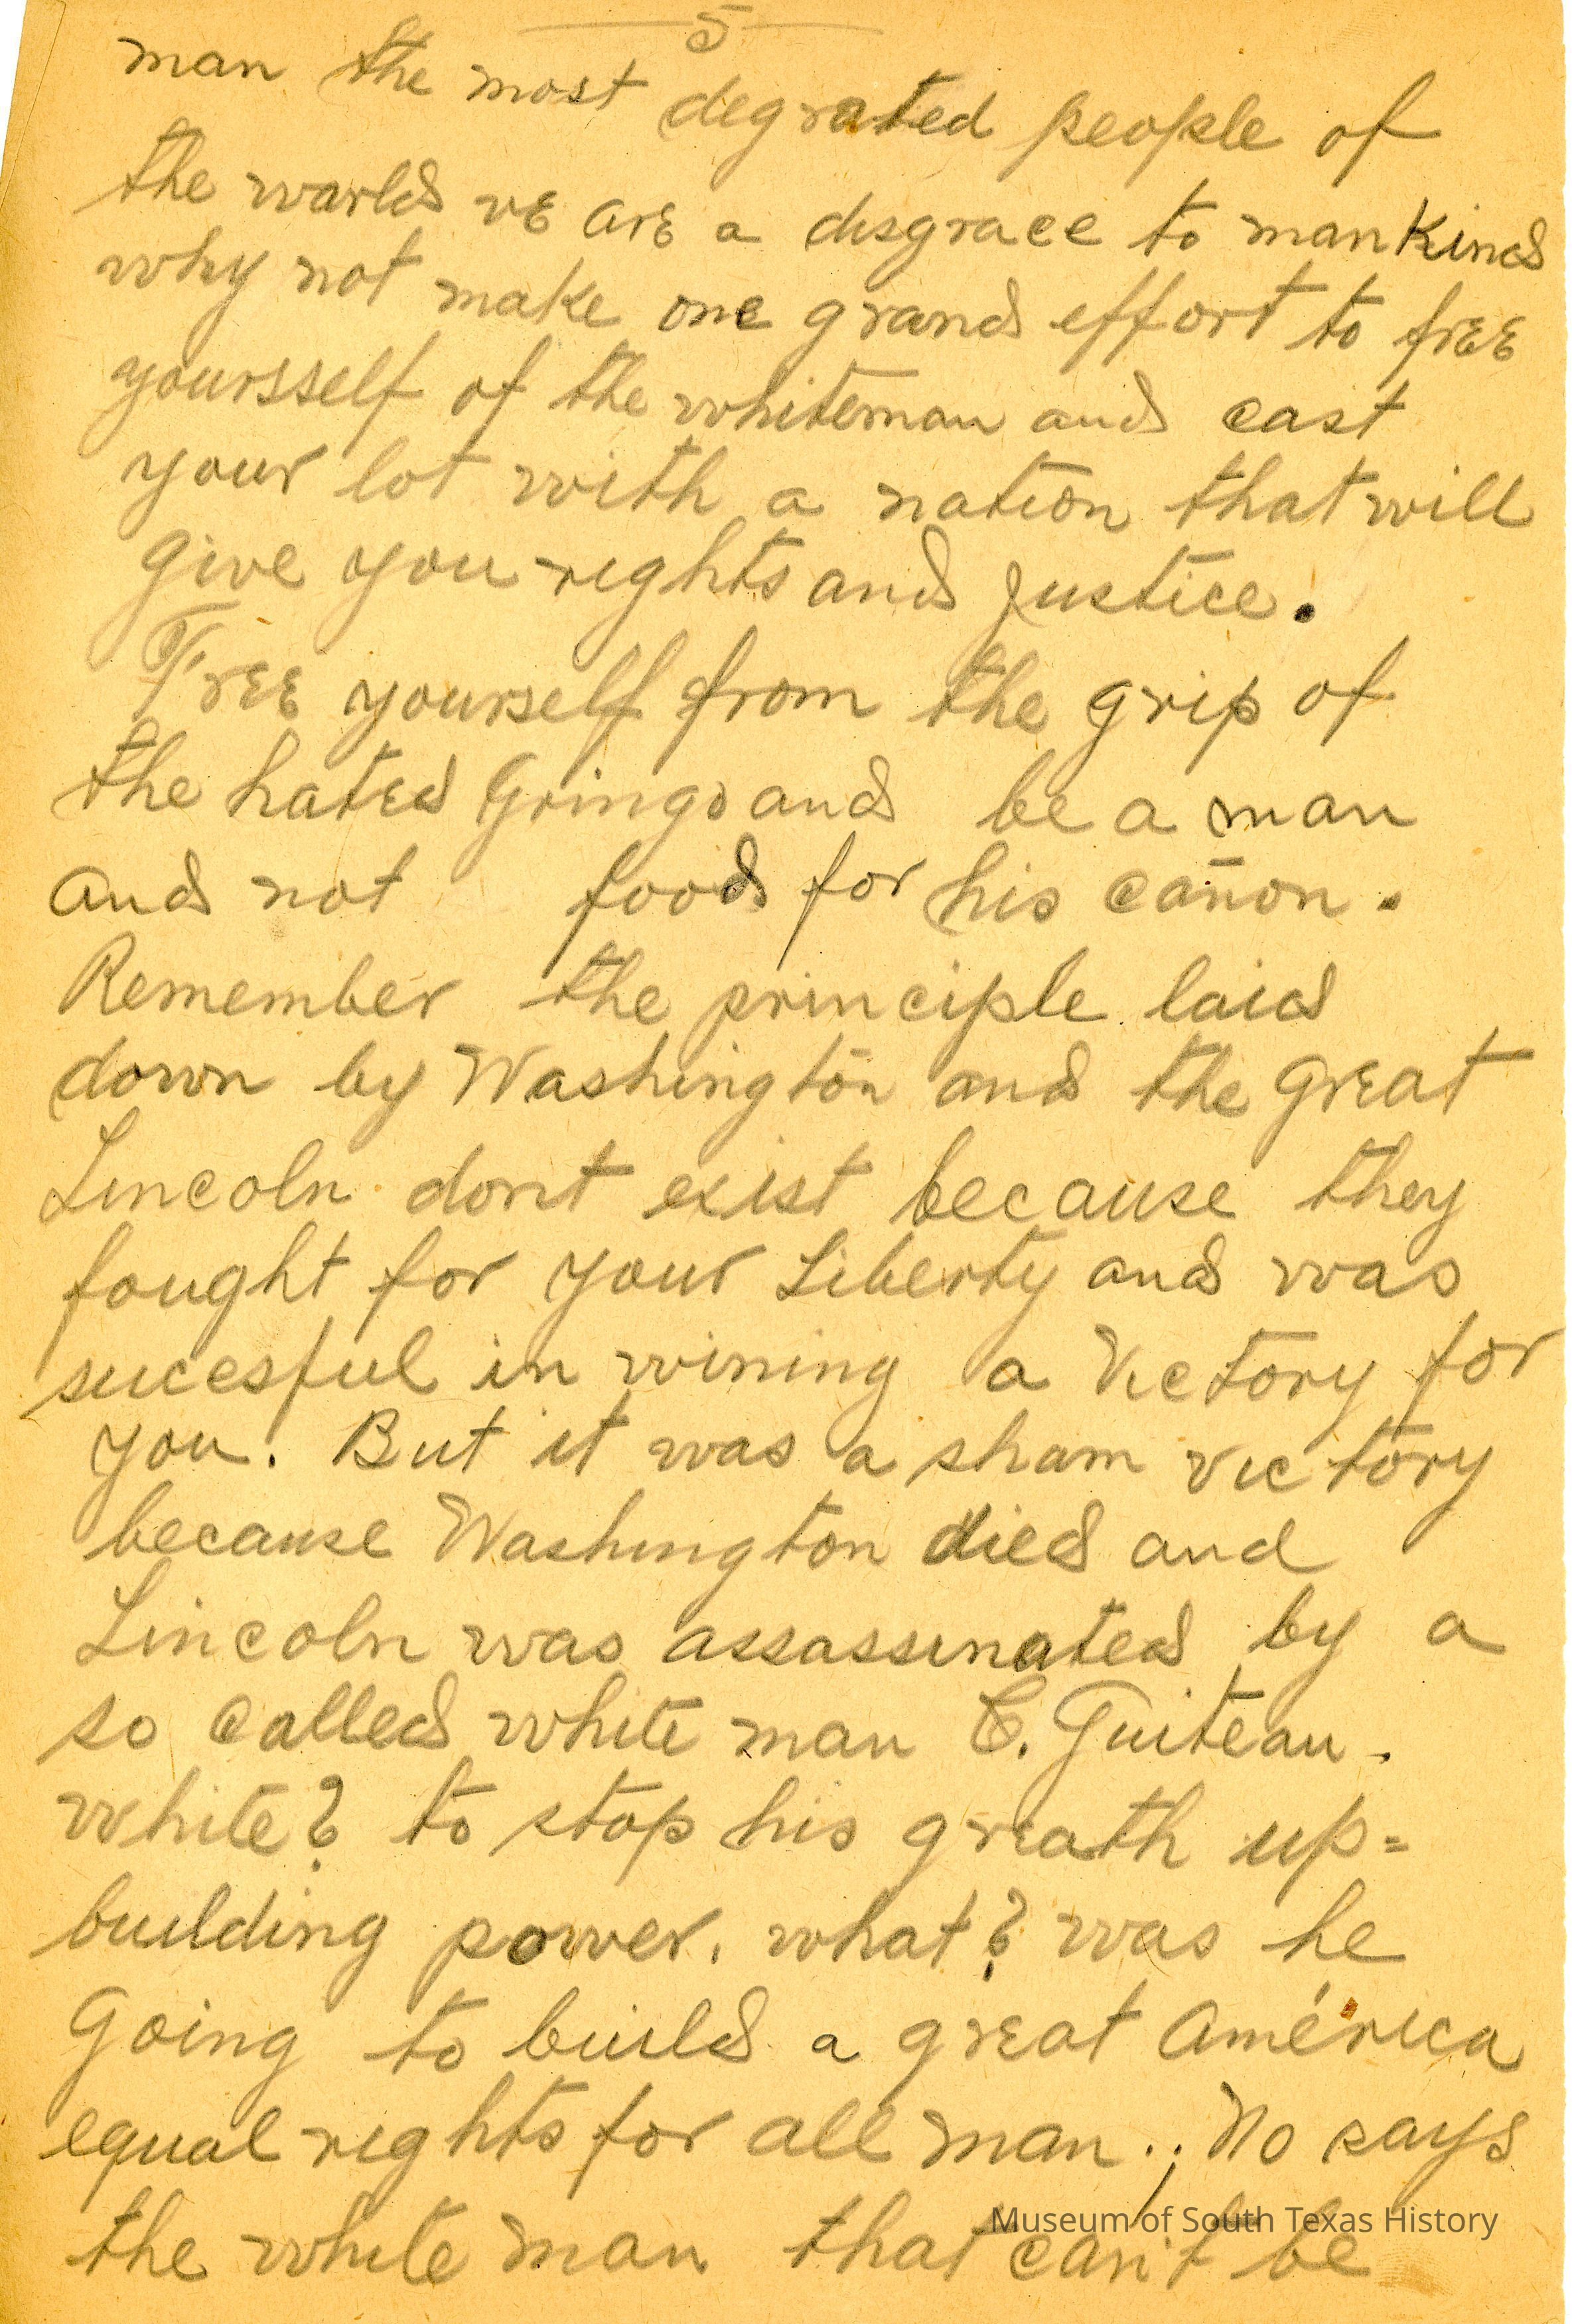 5
man the most degrated people of
the world vE arE a disgrace to manKind
why not make one grand effort to frEE
yoursself of the whiteman and cast
your lot with a nation that will
give you rights and justice.
FrEE yourself from the grip of
the hated Gringo and be a man
and not food for his cañon.
Remember the principle laid
down by Washington and the Great
Lincoln dont exist because they
fought for your Liberty and was
sucesful in wining a Victory for
you. But it was a sham victory
because Washington died and
Lincoln was assassinated by a
so called white man C. Guiteau.
white? to stop his greath up=
building power. what? was he
Going to build a great América
equal rights for all man.; No says
the white man that can't be
Museum of South Texas History